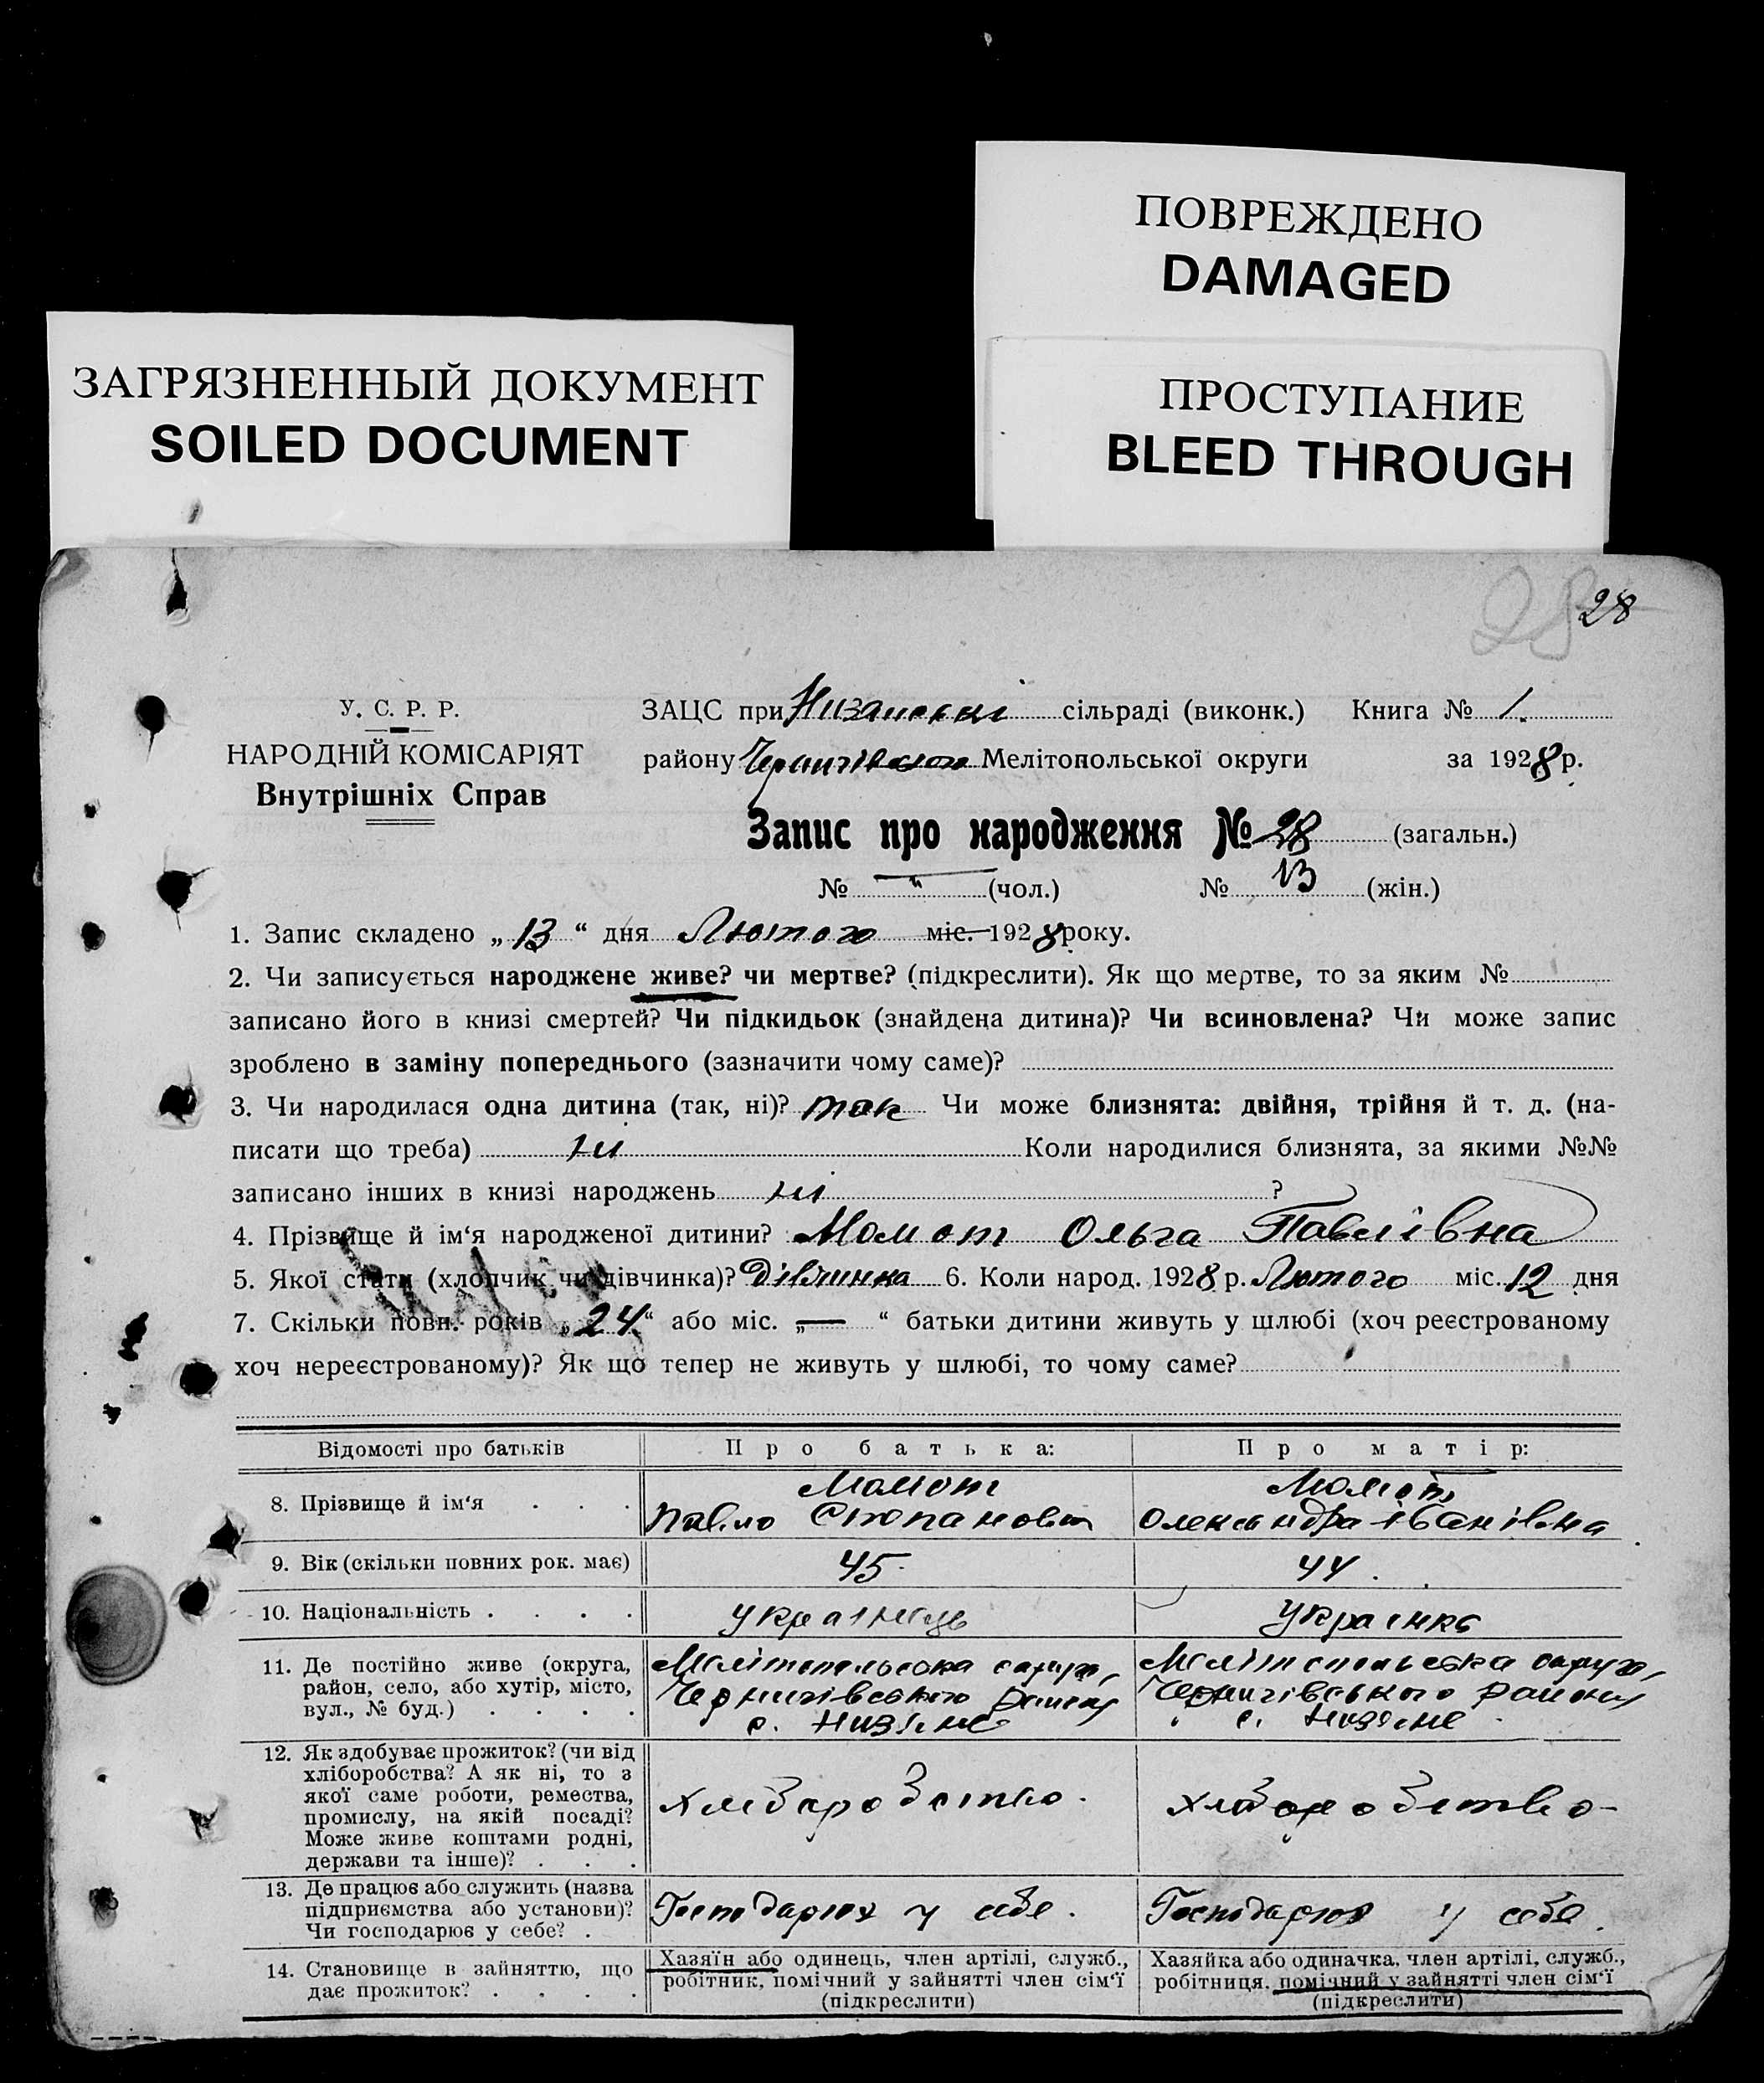 ПОВРЕЖДЕНО
DAMAGED
ЗАГРЯЗНЕННЫЙ ДОКУМЕНТ
SOILED DOCUMENT
ПРОСТУПАНИЕ
BLEED THROUGH
28 28
У. С. Р. Р.
НАРОДНІЙ КОМІСАРІЯТ
Внутрішніх Справ
ЗАЦС при сільраді (виконк.) Книга № 1.
району Чернигівского Мелітопольської округи за 1928 р.
Запис про народження № 28 (загальн.)
№ " (чол.) № 13 (жін.)
1. Запис складено „ 13 “ дня Лютого міс. 1928 року.
2. Чи записується народжене живе? чи мертве? (підкреслити). Як що мертве, то за яким №
записано його в книзі смертей? Чи підкидьок (знайдена дитина)? Чи всиновлена? Чи може запис
зроблено в заміну попереднього (зазначити чому саме)?
3. Чи народилася одна дитина (так, ні)? так Чи може близнята: двійня, трійня й т. д. (на-
писати що треба) ни Коли народилися близнята, за якими №№
записано інших в книзі народжень ні ?
4. Прізвище й ім‘я народженої дитини? Момот Ольга Павлівна
5. Якої стати (хлопчик чи дівчинка)? Дівчинка 6. Коли народ. 1928 р. Лютого міс. 12 дня
7. Скільки повн. років „ 24 “ або міс. „ — “ батьки дитини живуть у шлюбі (хоч реєстрованому
хоч нереєстрованому)? Як що тепер не живуть у шлюбі, то чому саме?
Відомості про батьків
Про батька:
Про матір:
8. Прізвище й ім‘я . . .
Момот
Павло Степанович
Момот
Олександра Іванівна
9. Вік (скільки повних рок. має)
45.
44.
10. Національність . . . .
українець
Українка
11. Де постійно живе (округа,
район, село, або хутір, місто,
вул., № буд.) . . . .
Мелітопольська округа,
Чернигівського району
с. Низяне
Мелітопольська округа,
Чернигівського району
с. Низяне
12. Як здобуває прожиток? (чи від
хліборобства? А як ні, то з
якої саме роботи, ремества,
промислу, на якій посаді?
Може живе коштами родні,
держави та інше)? . . .
хліборобство.
хліборобство-
13. Де працює або служить (назва
підприємства або установи)?
Чи господарює у себе? .
Господарює у себе.
Господарює у себе.
14. Становище в зайняттю, що
дає прожиток? . . . .
Хазяїн або одинець, член артілі, служб.,
робітник, помічний у зайнятті член сім‘ї
(підкреслити)
Хазяйка або одиначка, член артілі, служб.,
робітниця, помічний у зайнятті член сім‘ї
(підкреслити)